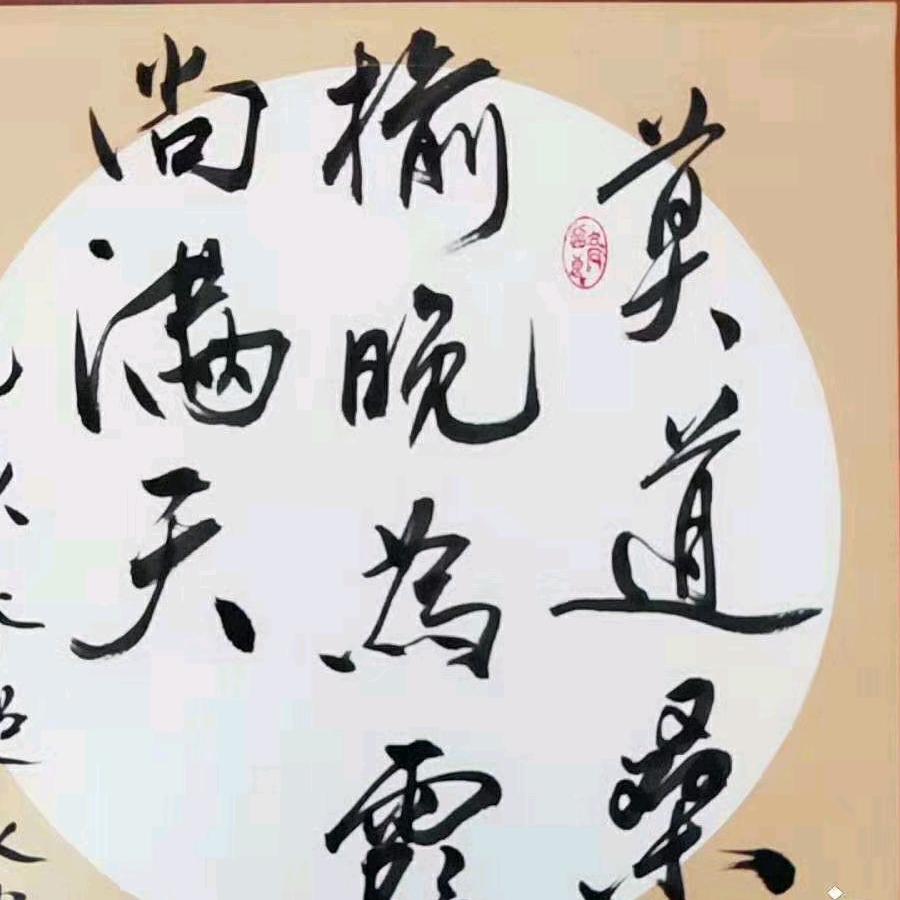 莫道桑
榆晚為霞
尚满天